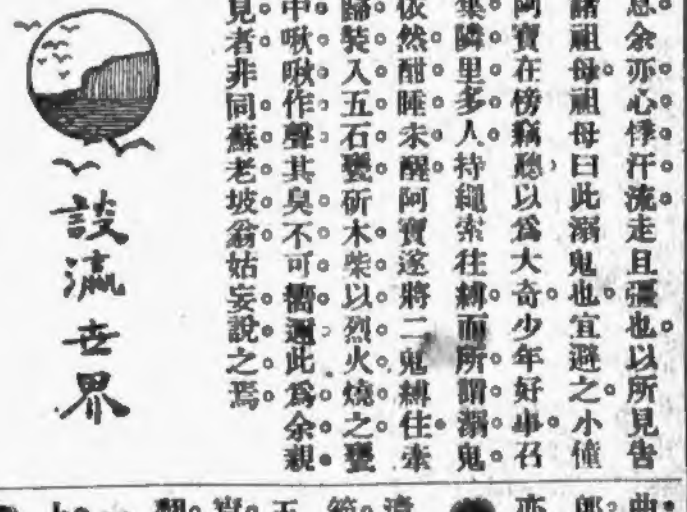 息余亦心悸汗流走且彊也以所見告
諸祖母祖母曰此溺鬼也宜避之小僮
阿寶在榜竊聽以爲大奇少年好事召
集隣里多人持繩索往縛而所謂溺鬼
依然酣睡未醒阿寶遂將二鬼縛住牽
歸裝入五石甕斫木柴以烈火燒之甕
中啾啾作聲其臭不可嚮邇此爲余親
見者非同蘇老坡翁姑妄說之焉
談瀛世界